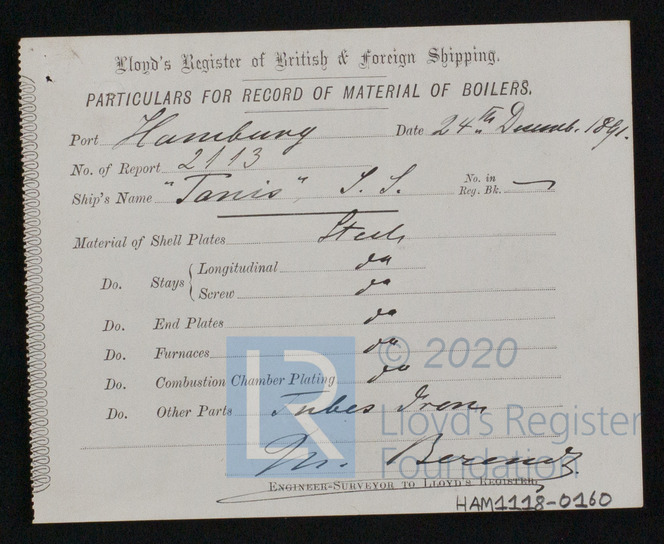 Lloyd's Register of British & Foreign Shipping.
PARTICULARS FOR RECORD OF MATERIAL OF BOILERS.
Port Hamburg Date 24th Decemb. 1891.
No. of Report 2113
Ship's Name "Tanis" S. S. No. in Reg. Bk. —
Material of Shell Plates Steel
Do. Stays { Longitudinal do
Screw do
Do. End Plates do
Do. Furnaces do
Do. Combustion Chamber Plating do
Do. Other Parts Tubes Iron
ENGINEER-SURVEYOR TO LLOYD'S REGISTER.
HAM1118-0160
LR
© 2020
Lloyd's Register
Foundation